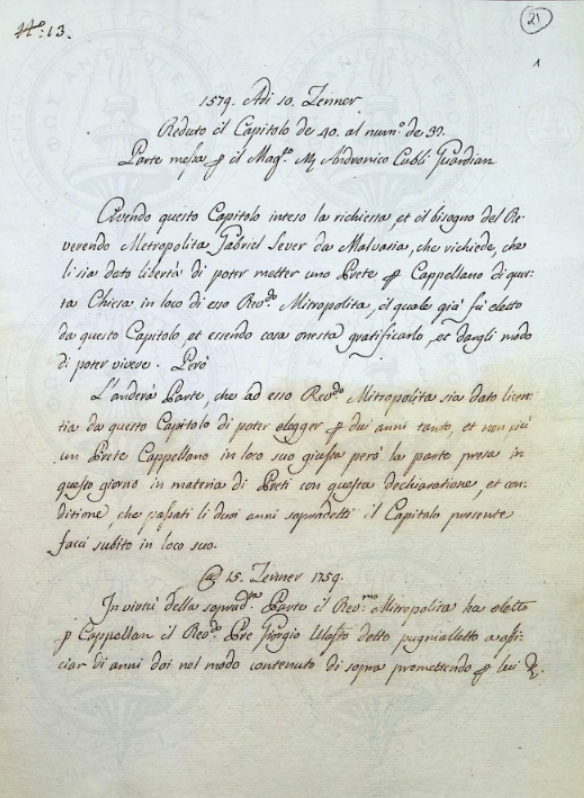 N:o 13.
21
1
1579. Adi 10. Zenner
Reduto il Capitolo de 40. al num:o de 37.
Parte messa p il Mag:co M Andronico Cubli Guardian
Avendo questo Capitolo inteso la richiessa, et il bisogno del Re-
verendo Metropolita Gabriel Sever da Malvasia, che richiede, che
li sia dato libertà di poter metter uno Prete p Cappellano di que-
sta Chiesa in loco di esso Rev:do Mitropolita, il quale già fù eletto
da questo Capitolo, et essendo cosa onesta gratificarlo, et dargli modo
di poter vivere. Però
L'anderà Parte, che ad esso Rev:do Mitropolita sia dato licen-
tia da questo Capitolo di poter elegger p dui anni tanto, et non più
un Prete Cappellano in loco suo giusta però la parte presa in
questo giorno in materia di Preti con questa dechiaratione, et con-
ditione, che passati li duoi anni sopradetti il Capitolo presente
facci subito in loco suo.
@ 15. Zenner 1759.
In virtù della soprad:ta Parte il Rev:mo Mitropolita ha eletto
p Cappellan il Rev:do Pre Giorgio detto pugnialletto a offi-
ciar di anni doi nel modo contenuto di sopra promettendo p lui &.